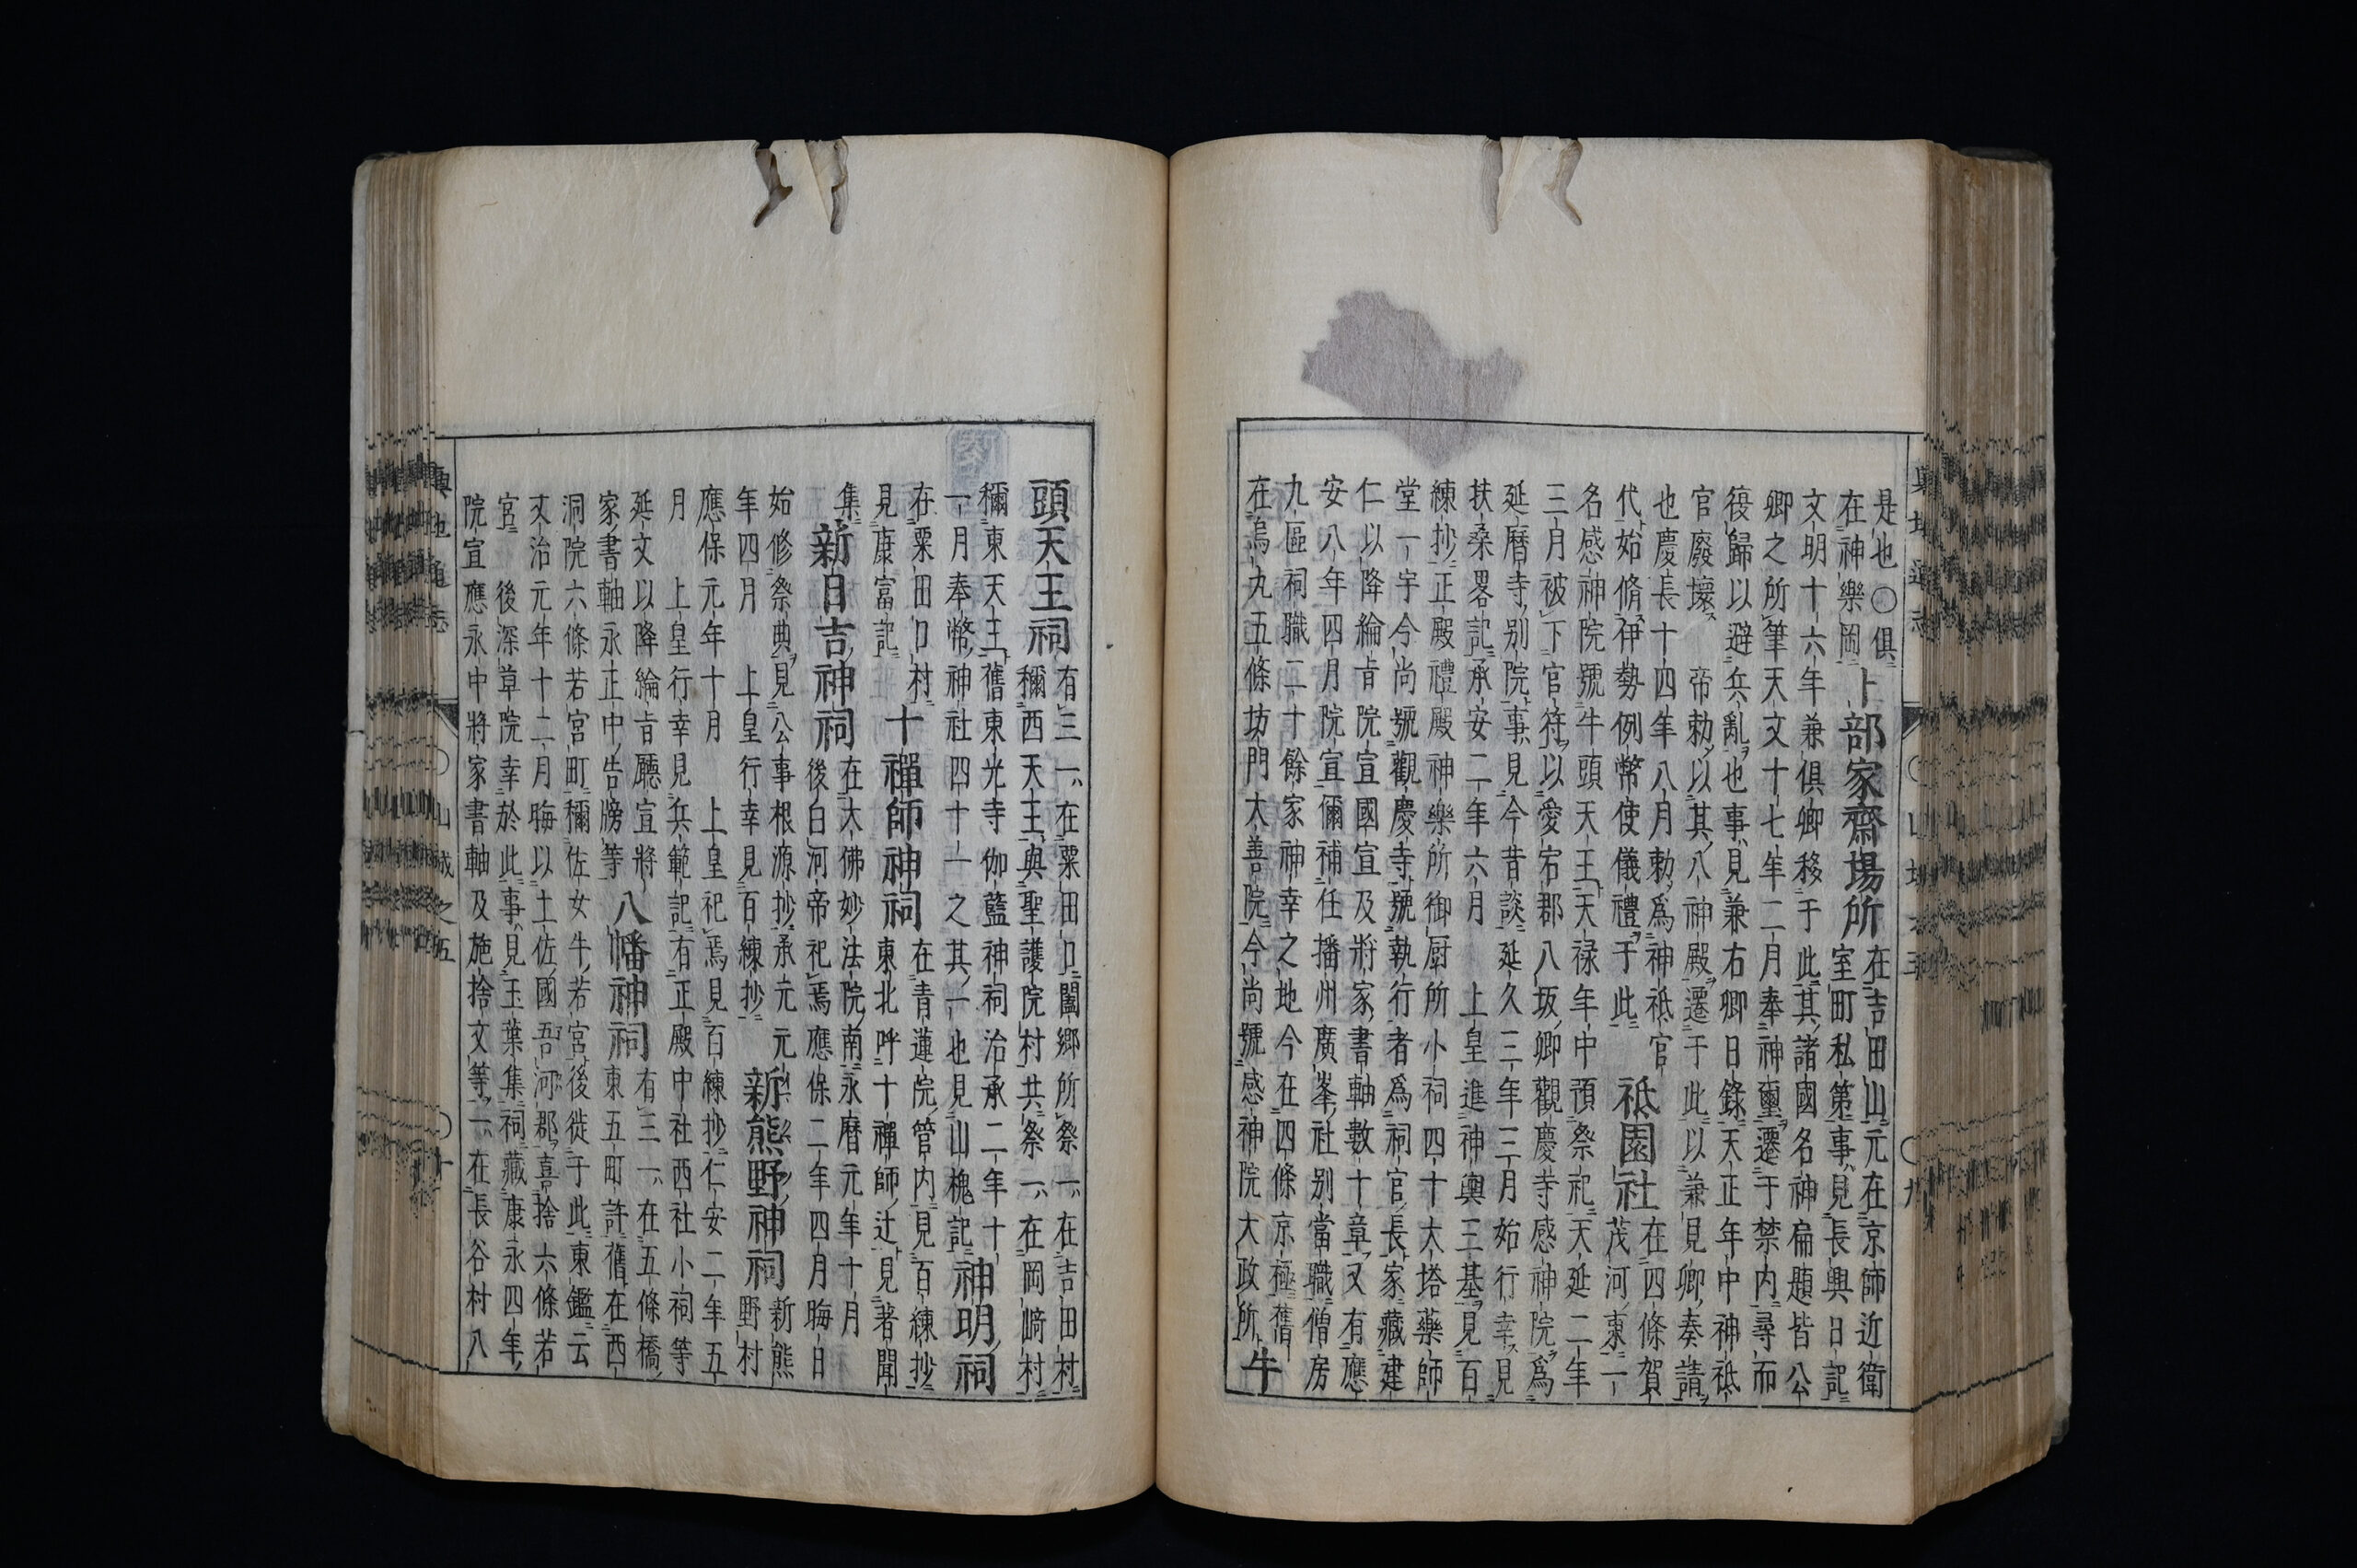 是也〇俱
在神樂岡
卜部家齋場所
在吉田山元在京師近衛
室町私第事見長興日記
文明十六年兼俱卿移于此其諸國名神扁題皆公
卿之所筆天文十七年二月奉神璽遷于禁内尋而
復歸以避兵亂也事見兼右卿日錄天正年中神祇
官廢壞　帝勅以其八神殿遷于此以兼見卿奏請
也慶長十四年八月勅爲神祇官
代始脩伊勢例幣使儀禮于此
祇園社
在四條賀
茂河東一
名感神院號牛頭天王天禄年中預祭祀天延二年
三月被下官符以愛宕郡八坂卿觀慶寺感神院爲
延曆寺別院事見今昔談延久三年三月始行幸見
扶桑畧記承安二年六月　上皇進神輿三基見百
練抄正殿禮殿神樂所御厨所小祠四十大塔藥師
堂一宇今尚號觀慶寺號執行者爲祠官長家藏建
仁以降綸旨院宣國宣及將家書軸數十章又有應
安八年四月院宣彌補任播州廣峯社別當職僧房
九區祠職二十餘家神幸之地今在四條京極舊
在烏丸五條坊門大善院今尚號感神院大政所
牛
頭天王祠
有三一在粟田口闔鄉所祭一在吉田村
稱西天王與聖護院村共祭一在岡﨑村
稱東天王舊東光寺伽藍神祠治承二年十
一月奉幣神社四十一之其一也見山槐記
神明祠
在粟田口村
見康富記
十禪師神祠
在青蓮院管内見百練抄
東北呼十禪師辻見著聞
集
新日吉神祠
在大佛妙法院南永曆元年十月
後白河帝祀焉應保二年四月晦日
始修祭典見公事根源抄承元元
年四月　上皇行幸見百練抄
新熊野神祠
新熊
野村
應保元年十月　上皇祀焉見百練抄仁安二年五
月　上皇行幸見兵範記有正殿中社西社小祠等
延文以降綸旨廳宣將
家書軸永正中告牓等
八幡神祠
有三一在五條橋
東五町許舊在西
洞院六條若宮町稱佐女牛若宮後徙于此東鑑云
文治元年十二月晦以土佐國吾河郡喜捨六條若
宮　後深草院幸於此事見玉葉集祠藏康永四年
院宣應永中將家書軸及施捨文等一在長谷村八
輿地通志
〇山城之五
〇十